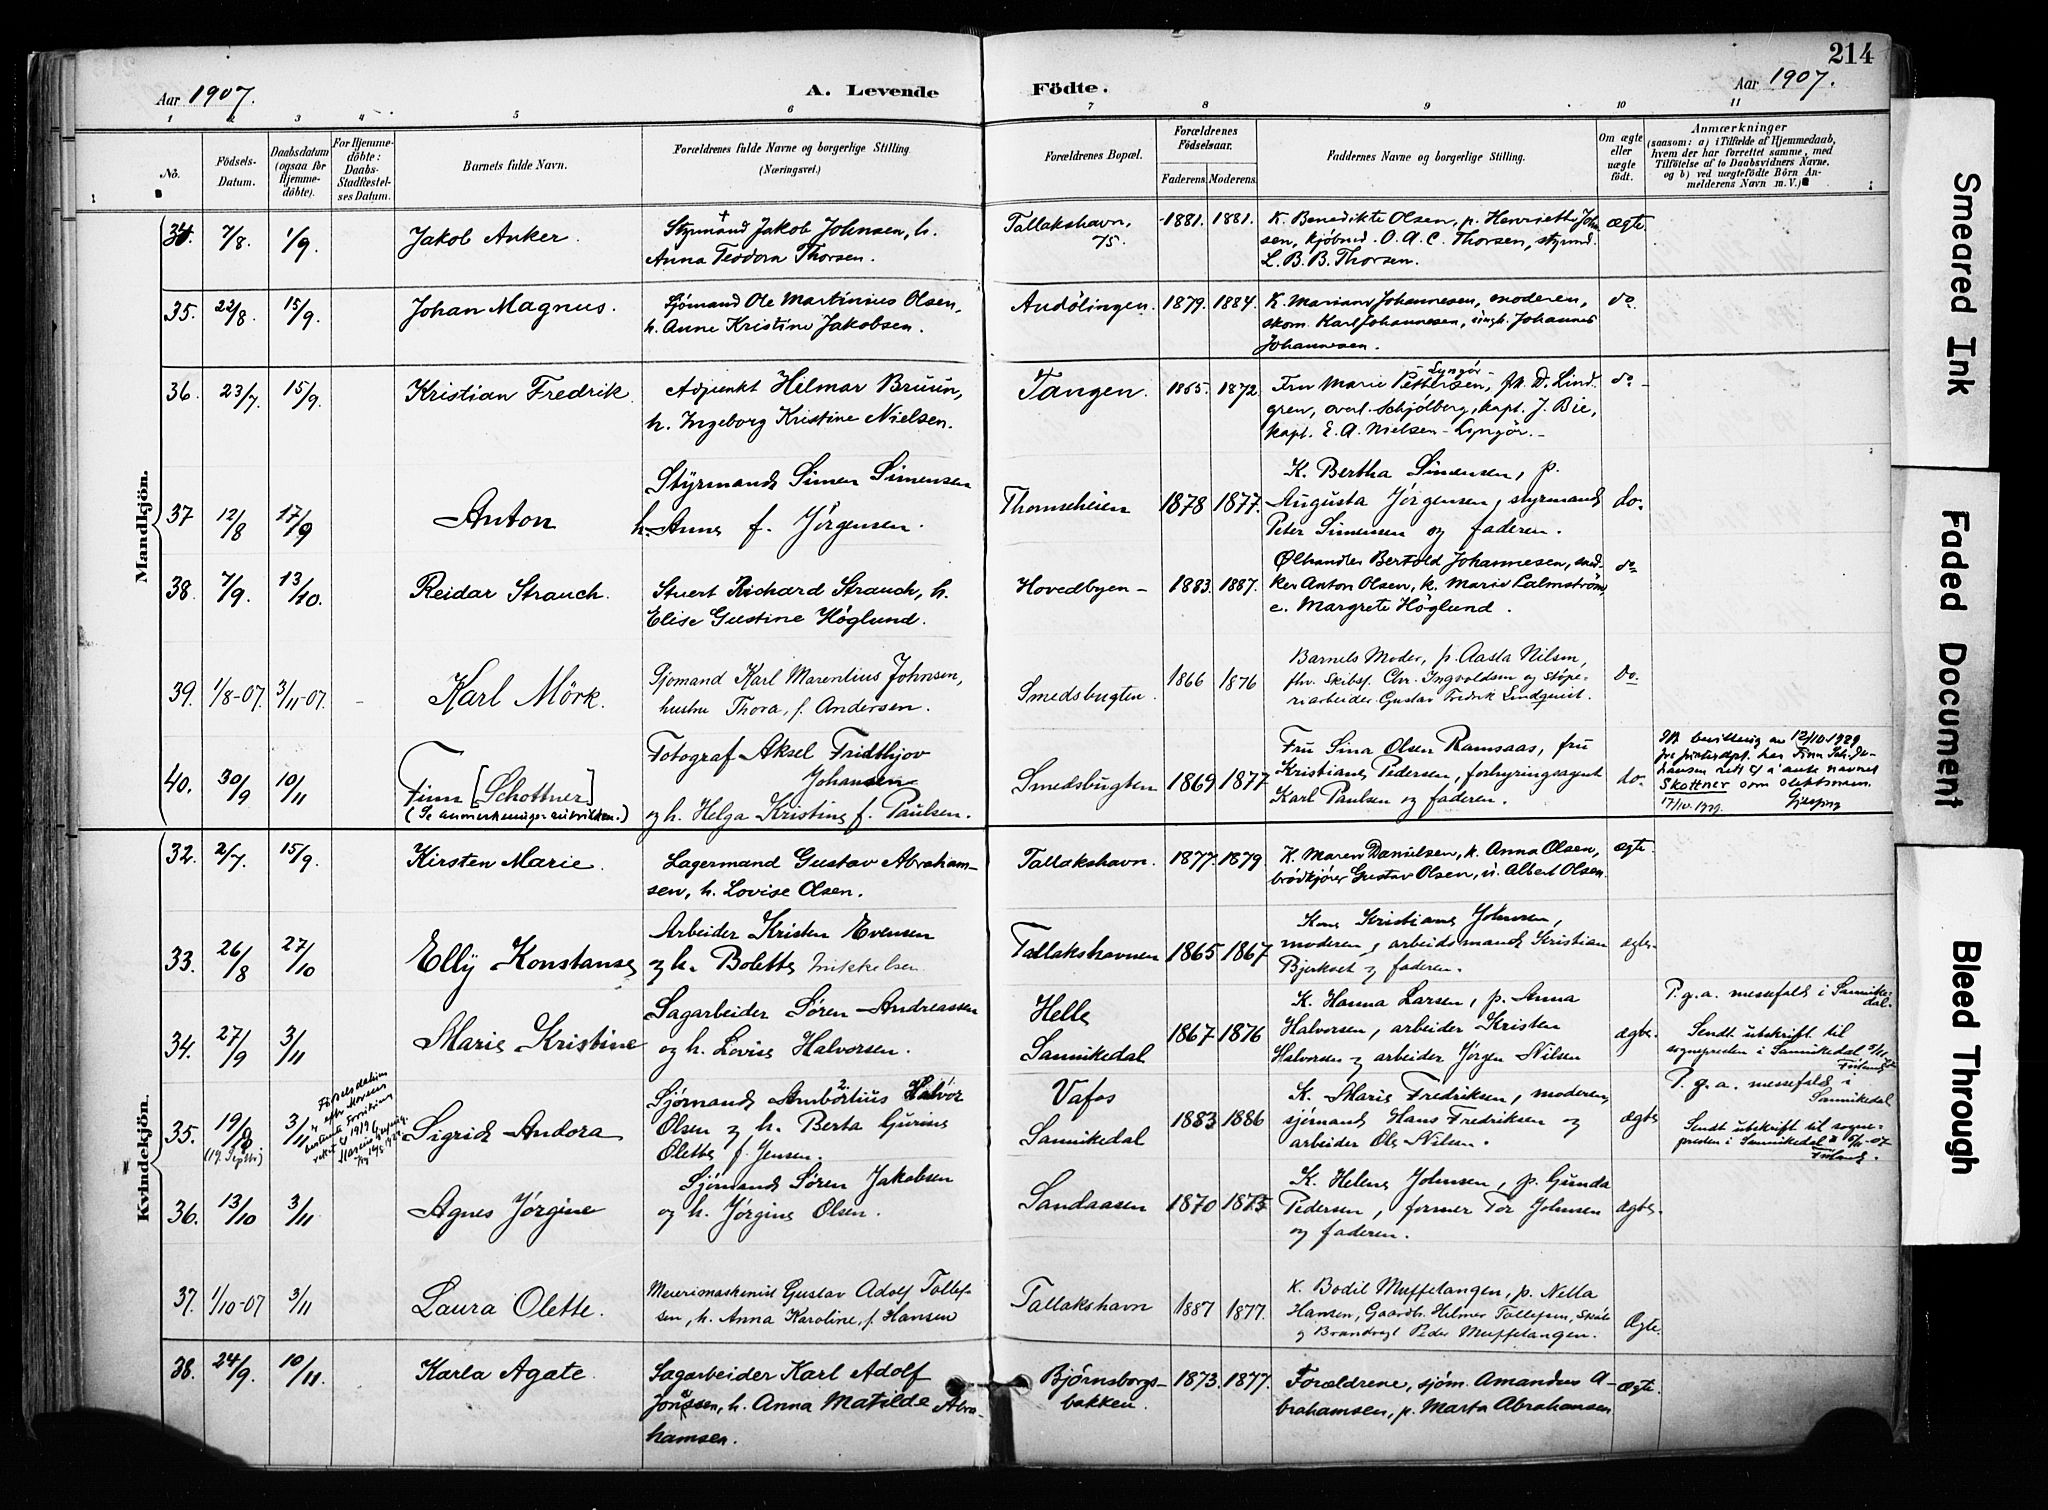 214
Aar 1907.
A. Levende
Födte.
Aar 1907.
1 2 3 4 5 6 7 8 9 10 11
No.
Födsels-
Datum.
Daabsdatum
(ogsaa for
Hjemme-
döbte).
For Hjemme-
döbte:
Daabs-
Stadfæstel-
ses Datum.
Barnets fulde Navn.
Forældrenes fulde Navne og borgerlige Stilling
(Næringsvei.)
Forældrenes Bopæl.
Forældrenes
Födselsaar.
Faderens. Moderens.
Faddernes Navne og borgerlige Stilling.
Om ægte
eller
uægte
födt.
Anmærkninger
(saasom: a) i Tilfælde af Hjemmedaab,
hvem der har forrettet samme, med
Tilföielse af to Daabsvidners Navne,
og b) ved uægtefödte Börn An-
melderens Navn m. V.)
Mandkjön.
34. 7/8. 1/9. Jakob Anker.
Styrmand Jakob Johnsen, h.
Anna Teodora Thorsen.
Tallakshavn, 75. 1881. 1881.
K. Benedikte Olsen, p. Henriette Joh
sen, kjøbmd. O. A. C. Thorsen, styrmd.
L. B. B. Thorsen.
ægte
35. 22/8. 15/9. Johan Magnus.
Sjömand Ole Martinius Olsen,
h. Anne Kristine Jakobsen.
Andölingen. 1879. 1884.
K. Mariane Johannesen, moderen,
skom. Karl Johannesen, ungk. Johannes
Johannesen.
do.
36. 23/7. 15/9. Kristian Fredrik.
Adjunkt Hilmar Bruun,
h. Ingeborg Kristine Nielsen.
Tangen. 1865. 1872.
- Lyngör -
Fru Marie Pettersen, fr. D. Lind
gren, overl. Schjölberg, kapt. J. Bie,
kapt. E. A. Nielsen - Lyngör. -
do -
37 12/8 17/9 Anton
Styrmand Simen Simensen
h. Anne f. Jørgensen.
Thomesheien 1878 1877.
K. Bertha Simensen, p.
Augusta Jørgensen, styrmand
Peter Simensen og faderen.
do.
38. 7/9. 13/10. Reidar Strauch.
Stuert Richard Strauch, h.
Elise Gustine Höglund.
Hovedbyen - 1883. 1887.
Ølhandler Bertold Johannesen, sned-
ker Anton Olsen, k. Marie Calmström,
e. Margrete Höglund.
do
39. 1/8-07. 3/11-07. - Karl Mörk.
Sjomand Karl Marentius Johnsen,
hustru Thora, f. Andersen.
Smedsbugten 1866 1876
Barnets Moder, p. Aasta Nilsen,
fhv. Skibsf. Chr. Ingvoldsen og støpe-
riarbeider Gustav Fredrik Lindquist.
Do.
40. 30/9 10/11 Finn [Schottner]
(Se anmerkningsrubrikken.)
Fotograf Aksel Fridthjov
Johansen
og h. Helga Kristine f. Paulsen.
Smedsbugten 1869 1877
Fru Sina Olsen Ramsaas, fru
Kristiane Pedersen, forhyringsagent
Karl Paulsen og faderen.
do.
bevilling av 12/10.1929
Skottner som slektsnavn.
17/10.1929.
Kvindekjön.
32. 2/7. 15/9. Kirsten Marie.
Lagermand Gustav Abraham-
sen, h. Lovise Olsen.
Tallakshavn. 1877. 1879
K. Maren Danielsen, k. Anna Olsen,
brödkjörer Gustav Olsen, u. Albert Olsen.
ægte
33. 26/8 27/10 Elly Konstanse
Arbeider Kristen Evensen
og h. Bolette Mikkelsen
Tallakshavnen 1865 1867
Kone Kristiane Johnsen,
moderen, arbeidsmand Kristian
Bjerkset og faderen.
ægte.
34. 27/9 3/11 Marie Kristine
Sagarbeider Søren Andreassen
og h. Lovise Halvorsen.
Helle
Sannikedal 1867 1876
K. Hanna Larsen, p. Anna
Halvorsen, arbeider Kristen
Halvorsen og arbeider Jørgen Nilsen
ægte.
P. g. a. messefald i Sannike-
dal.
Sendt utskrift til
sognepresten i Sannikedal 5/11
35. 19/8 3/11 Sigrid Andora
(19. Septbr)
Sjømand Ambortius Halvor
Olsen og h. Berta Gurine
Olette f. Jensen.
Vafos
Sannikedal 1883 1886
K. Marie Fredriksen, moderen,
sjømand Hans Fredriksen og
arbeider Ole Nilsen.
Ægte
P. g. a. messefald i
Sannikedal
Sendt utskrift til sogne-
presten i Sannikedal 5/11-07
36. 13/10 3/11 Agnes Jørgine
Sjømand Søren Jakobsen
og h. Jørgine Olsen.
Sandaasen 1870 1875
K. Helene Johnsen, p. Gunda
Pedersen, former Tor Johnsen
og faderen.
Ægte.
37. 1/10-07 3/11 Laura Olette.
Meierimaskinist Gustav Adolf Tollef-
sen, h. Anna Karoline, f. Hansen
Tallakshavn 1887 1877.
K. Bodil Muffetangen, p. Nella
Hansen, Gaardb. Hilmer Tollefsen, Skåtö
og Brandvagt Peder Muffetangen.
Ægte.
38. 24/9. 10/11. Karla Agate.
Sagarbeider Karl Adolf
Jonssen, h. Anna Matilde Abra-
hamsen.
Björnsborgs-
bakken. 1873. 1877.
Forældrene, sjöm. Amandus A-
brahamsen, p. Marta Abrahamsen
ægte.
Smeared Ink
Faded Document
Bleed Through